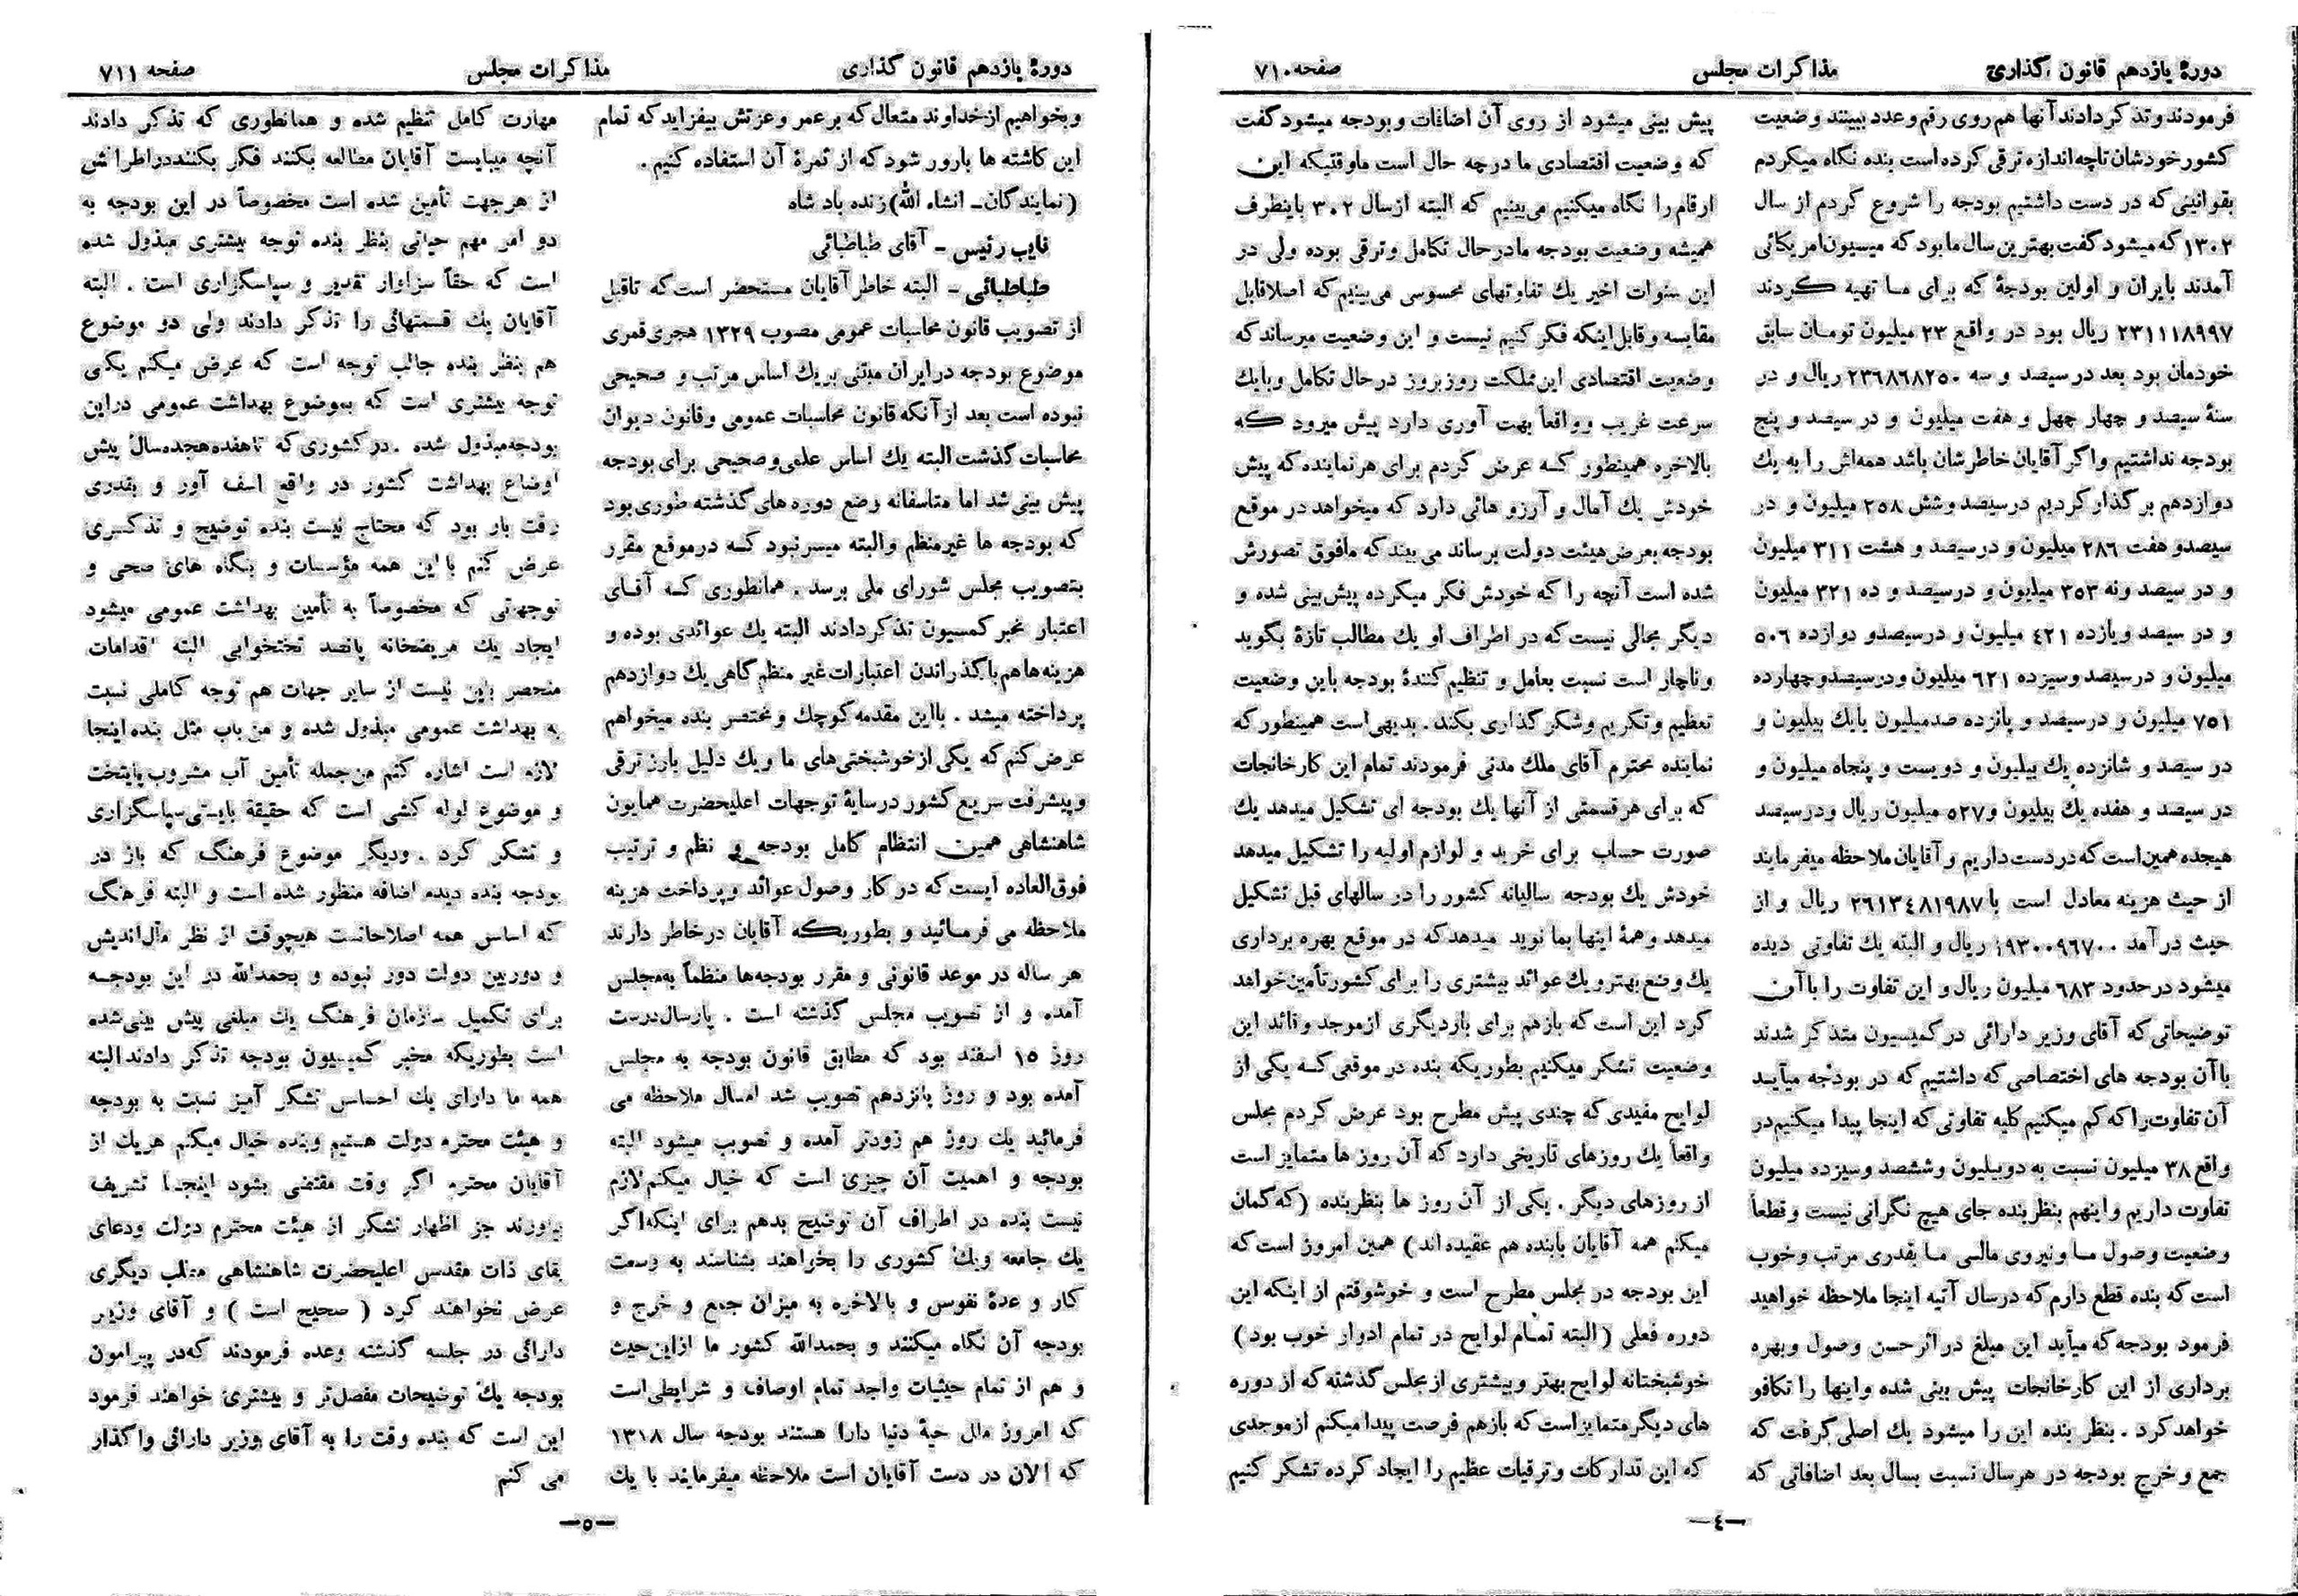 دورهٔ یازدهم قانون گذاری
مذاکرات مجلس
صفحه ۷۱۰
فرمودند و تذکر دادند آنها هم روی رقم و عدد ببینند وضعیت
کشور خودشان تا چه اندازه ترقی کرده است بنده نگاه میکردم
بقوانینی که در دست داشتیم بودجه را شروع کردم از سال
۱۳۰۲ که میشود گفت بهترین سال ما بود که میسیون امریکائی
آمدند بایران و اولین بودجهٔ که برای ما تهیه کردند
۲۳۱۱۱۸۹۹۷ ریال بود در واقع ۲۳ میلیون تومان سابق
خودمان بود بعد در سیصد و سه ۲۳۶۸۶۸۲۵۰ ریال و در
سنهٔ سیصد و چهار چهل و هفت میلیون و در سیصد و پنج
بودجه نداشتیم و اگر آقایان خاطرشان باشد همه‌اش را به یك
دوازدهم برگذار کردیم در سیصد و شش ۲۵۸ میلیون و در
سیصد و هفت ۲۸۶ میلیون و در سیصد و هشت ۳۱۱ میلیون
و در سیصد و نه ۳۵۳ میلیون و در سیصد و ده ۳۲۱ میلیون
و در سیصد و یازده ۴۲۱ میلیون و در سیصد و دوازده ۵۰۶
میلیون و در سیصد و سیزده ۶۲۱ میلیون و در سیصد و چهارده
۷۵۱ میلیون و در سیصد و پانزده صد میلیون یا یك بیلیون و
در سیصد و شانزده یك بیلیون و دویست و پنجاه میلیون و
در سیصد و هفده یك بیلیون و ۵۲۷ میلیون ریال و در سیصد
هیجده همین است که در دست داریم و آقایان ملاحظه میفرمایند
از حیث هزینه معادل است با ۲۶۱۳۴۸۱۹۸۷ ریال و از
حیث درآمد ۱۹۳۰۰۹۶۷۰۰ ریال و البته یك تفاوتی دیده
میشود در حدود ۶۸۳ میلیون ریال و این تفاوت را با آن
توضیحاتی که آقای وزیر دارائی در کمیسیون متذکر شدند
با آن بودجه های اختصاصی که داشتیم که در بودجه میآید
آن تفاوت را که کم میکنیم کلیه تفاوتی که اینجا پیدا میکنیم در
واقع ۳۸ میلیون نسبت به دو بیلیون و ششصد و سیزده میلیون
تفاوت داریم و اینهم بنظر بنده جای هیچ نگرانی نیست و قطعاً
وضعیت وصول ما و نیروی مالی ما بقدری مرتب و خوب
است که بنده قطع دارم که در سال آتیه اینجا ملاحظه خواهید
فرمود بودجه که میآید این مبلغ در اثر حسن وصول و بهره
برداری از این کارخانجات پیش بینی شده و اینها را تکافو
خواهد کرد . بنظر بنده این را میشود یك اصلی گرفت که
جمع و خرج بودجه در هر سال نسبت بسال بعد اضافاتی که
پیش بینی میشود از روی آن اضافات و بودجه میشود گفت
که وضعیت اقتصادی ما در چه حال است ما وقتیکه این
ارقام را نگاه میکنیم می‌بینیم که البته از سال ۳۰۲ باینطرف
همیشه وضعیت بودجه ما در حال تکامل و ترقی بوده ولی در
این سنوات اخیر یك تفاوتهای محسوسی می‌بینیم که اصلا قابل
مقایسه و قابل اینکه فکر کنیم نیست و این وضعیت میرساند که
وضعیت اقتصادی این مملکت روز بروز در حال تکامل و با یك
سرعت غریب و واقعاً بهت آوری دارد پیش میرود که
بالاخره همینطور که عرض کردم برای هر نماینده که پیش
خودش یك آمال و آرزو هائی دارد که میخواهد در موقع
بودجه بعرض هیئت دولت برساند می بیند که مافوق تصورش
شده است آنچه را که خودش فکر میکرده پیش‌بینی شده و
دیگر مجالی نیست که در اطراف او یك مطالب تازهٔ بگوید
و ناچار است نسبت بعامل و تنظیم کنندهٔ بودجه باین وضعیت
تعظیم و تکریم و شکر گذاری بکند . بدیهی است همینطور که
نماینده محترم آقای ملك مدنی فرمودند تمام این کارخانجات
که برای هر قسمتی از آنها یك بودجه ای تشکیل میدهد یك
صورت حساب برای خرید و لوازم اولیه را تشکیل میدهد
خودش یك بودجه سالیانه کشور را در سالهای قبل تشکیل
میدهد و همهٔ اینها بما نوید میدهد که در موقع بهره برداری
یك وضع بهتر و یك عوائد بیشتری را برای کشور تأمین خواهد
کرد این است که باز هم برای بار دیگری از موجد و قائد این
وضعیت تشکر میکنیم بطوریکه بنده در موقعی که یکی از
لوایح مفیدی که چندی پیش مطرح بود عرض کردم مجلس
واقعاً یك روزهای تاریخی دارد که آن روز ها متمایز است
از روزهای دیگر . یکی از آن روز ها بنظر بنده (که گمان
میکنم همه آقایان با بنده هم عقیده اند) همین امروز است که
این بودجه در مجلس مطرح است و خوشوقتم از اینکه این
دوره فعلی (البته تمام لوایح در تمام ادوار خوب بود)
خوشبختانه لوایح بهتر و بیشتری از مجلس گذشته که از دوره
های دیگر متمایز است که باز هم فرصت پیدا میکنم از موجدی
که این تدارکات و ترقیات عظیم را ایجاد کرده تشکر کنیم
—٤—
دورهٔ یازدهم قانون گذاری
مذاکرات مجلس
صفحه ۷۱۱
و بخواهیم از خداوند متعال که بر عمر و عزتش بیفزاید که تمام
این کاشته ها بارور شود که از ثمرهٔ آن استفاده کنیم .
(نمایندگان ـ انشاء الله) زنده باد شاه
نایب رئیس ـ آقای طباطبائی
طباطبائی ـ البته خاطر آقایان مستحضر است که تا قبل
از تصویب قانون محاسبات عمومی مصوب ۱۳۲۹ هجری قمری
موضوع بودجه در ایران مبتنی بر یك اساس مرتب و صحیحی
نبوده است بعد از آنکه قانون محاسبات عمومی و قانون دیوان
محاسبات گذشت البته یك اساس علمی و صحیحی برای بودجه
پیش بینی شد اما متاسفانه وضع دوره های گذشته طوری بود
که بودجه ها غیر منظم و البته میسر نبود که در موقع مقرر
بتصویب مجلس شورای ملی برسد . همانطوری که آقای
اعتبار مخبر کمسیون تذکر دادند البته یك عوائدی بوده و
هزینه ها هم با گذراندن اعتبارات غیر منظم گاهی یك دوازدهم
پرداخته میشد . با این مقدمه کوچك و مختصر بنده میخواهم
عرض کنم که یکی از خوشبختی‌های ما و یك دلیل بارز ترقی
و پیشرفت سریع کشور در سایهٔ توجهات اعلیحضرت همایون
شاهنشاهی همین انتظام کامل بودجه و نظم و ترتیب
فوق العاده ایست که در کار وصول عوائد و پرداخت هزینه
ملاحظه می فرمائید و بطوریکه آقایان در خاطر دارند
هر ساله در موعد قانونی و مقرر بودجه‌ها منظماً به مجلس
آمده و از تصویب مجلس گذشته است . پارسال درست
روز ۱۵ اسفند بود که مطابق قانون بودجه به مجلس
آمده بود و روز پانزدهم تصویب شد امسال ملاحظه می
فرمائید یك روز هم زودتر آمده و تصویب میشود البته
بودجه و اهمیت آن چیزی است که خیال میکنم لازم
نیست بنده در اطراف آن توضیح بدهم برای اینکه اگر
یك جامعه و یك کشوری را بخواهند بشناسند به وسعت
کار و عدهٔ نفوس و بالاخره به میزان جمع و خرج و
بودجه آن نگاه میکنند و بحمدالله کشور ما از این حیث
و هم از تمام حیثیات واجد تمام اوصاف و شرایطی است
که امروز ملل حیهٔ دنیا دارا هستند بودجه سال ۱۳۱۸
که الان در دست آقایان است ملاحظه میفرمایند با یك
مهارت کامل تنظیم شده و همانطوری که تذکر دادند
آنچه میبایست آقایان مطالعه بکنند فکر بکنند در اطرافش
از هر جهت تأمین شده است مخصوصاً در این بودجه به
دو امر مهم حیاتی بنظر بنده توجه بیشتری مبذول شده
است که حقاً سزاوار تقدیر و سپاسگزاری است . البته
آقایان یك قسمتهائی را تذکر دادند ولی دو موضوع
هم بنظر بنده جالب توجه است که عرض میکنم یکی
توجه بیشتری است که بموضوع بهداشت عمومی در این
بودجه مبذول شده . در کشوری که تا هفده هجده سال پیش
اوضاع بهداشت کشور در واقع اسف آور و بقدری
رقت بار بود که محتاج نیست بنده توضیح و تذکری
عرض کنم با این همه مؤسسات و بنگاه های صحی و
توجهی که مخصوصاً به تأمین بهداشت عمومی میشود
ایجاد یك مریضخانه پانصد تختخوابی البته اقدامات
منحصر باین نیست از سایر جهات هم توجه کاملی نسبت
به بهداشت عمومی مبذول شده و من باب مثل بنده اینجا
لازم است اشاره کنم من جمله تأمین آب مشروب پایتخت
و موضوع لوله کشی است که حقیقة بایستی سپاسگزاری
و تشکر کرد . و دیگر موضوع فرهنگ که باز در
بودجه بنده دیدم اضافه منظور شده است و البته فرهنگ
که اساس همه اصلاحاتست هیچوقت از نظر مآل‌اندیش
و دوربین دولت دور نبوده و بحمدالله در این بودجه
برای تکمیل سازمان فرهنگ یك مبلغی پیش بینی شده
است بطوریکه مخبر کمیسیون بودجه تذکر دادند البته
همه ما دارای یك احساس تشکر آمیز نسبت به بودجه
و هیئت محترم دولت هستیم و بنده خیال میکنم هر یك از
آقایان محترم اگر وقت مقتضی بشود اینجا تشریف
بیاورند جز اظهار تشکر از هیئت محترم دولت و دعای
بقای ذات مقدس اعلیحضرت شاهنشاهی مطلب دیگری
عرض نخواهند کرد ( صحیح است ) و آقای وزیر
دارائی در جلسه گذشته وعده فرمودند که در پیرامون
بودجه یك توضیحات مفصل‌تر و بیشتری خواهند فرمود
این است که بنده وقت را به آقای وزیر دارائی واگذار
می کنم
—٥—